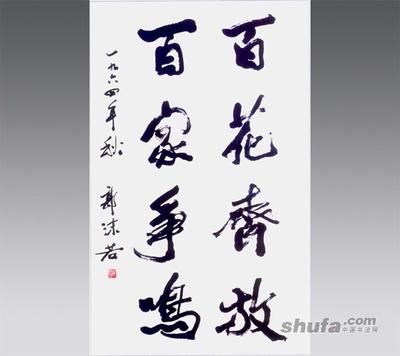 百花齊放
百家争鳴
一九六四年秋
郭沫若
shufa.com
中国书法网